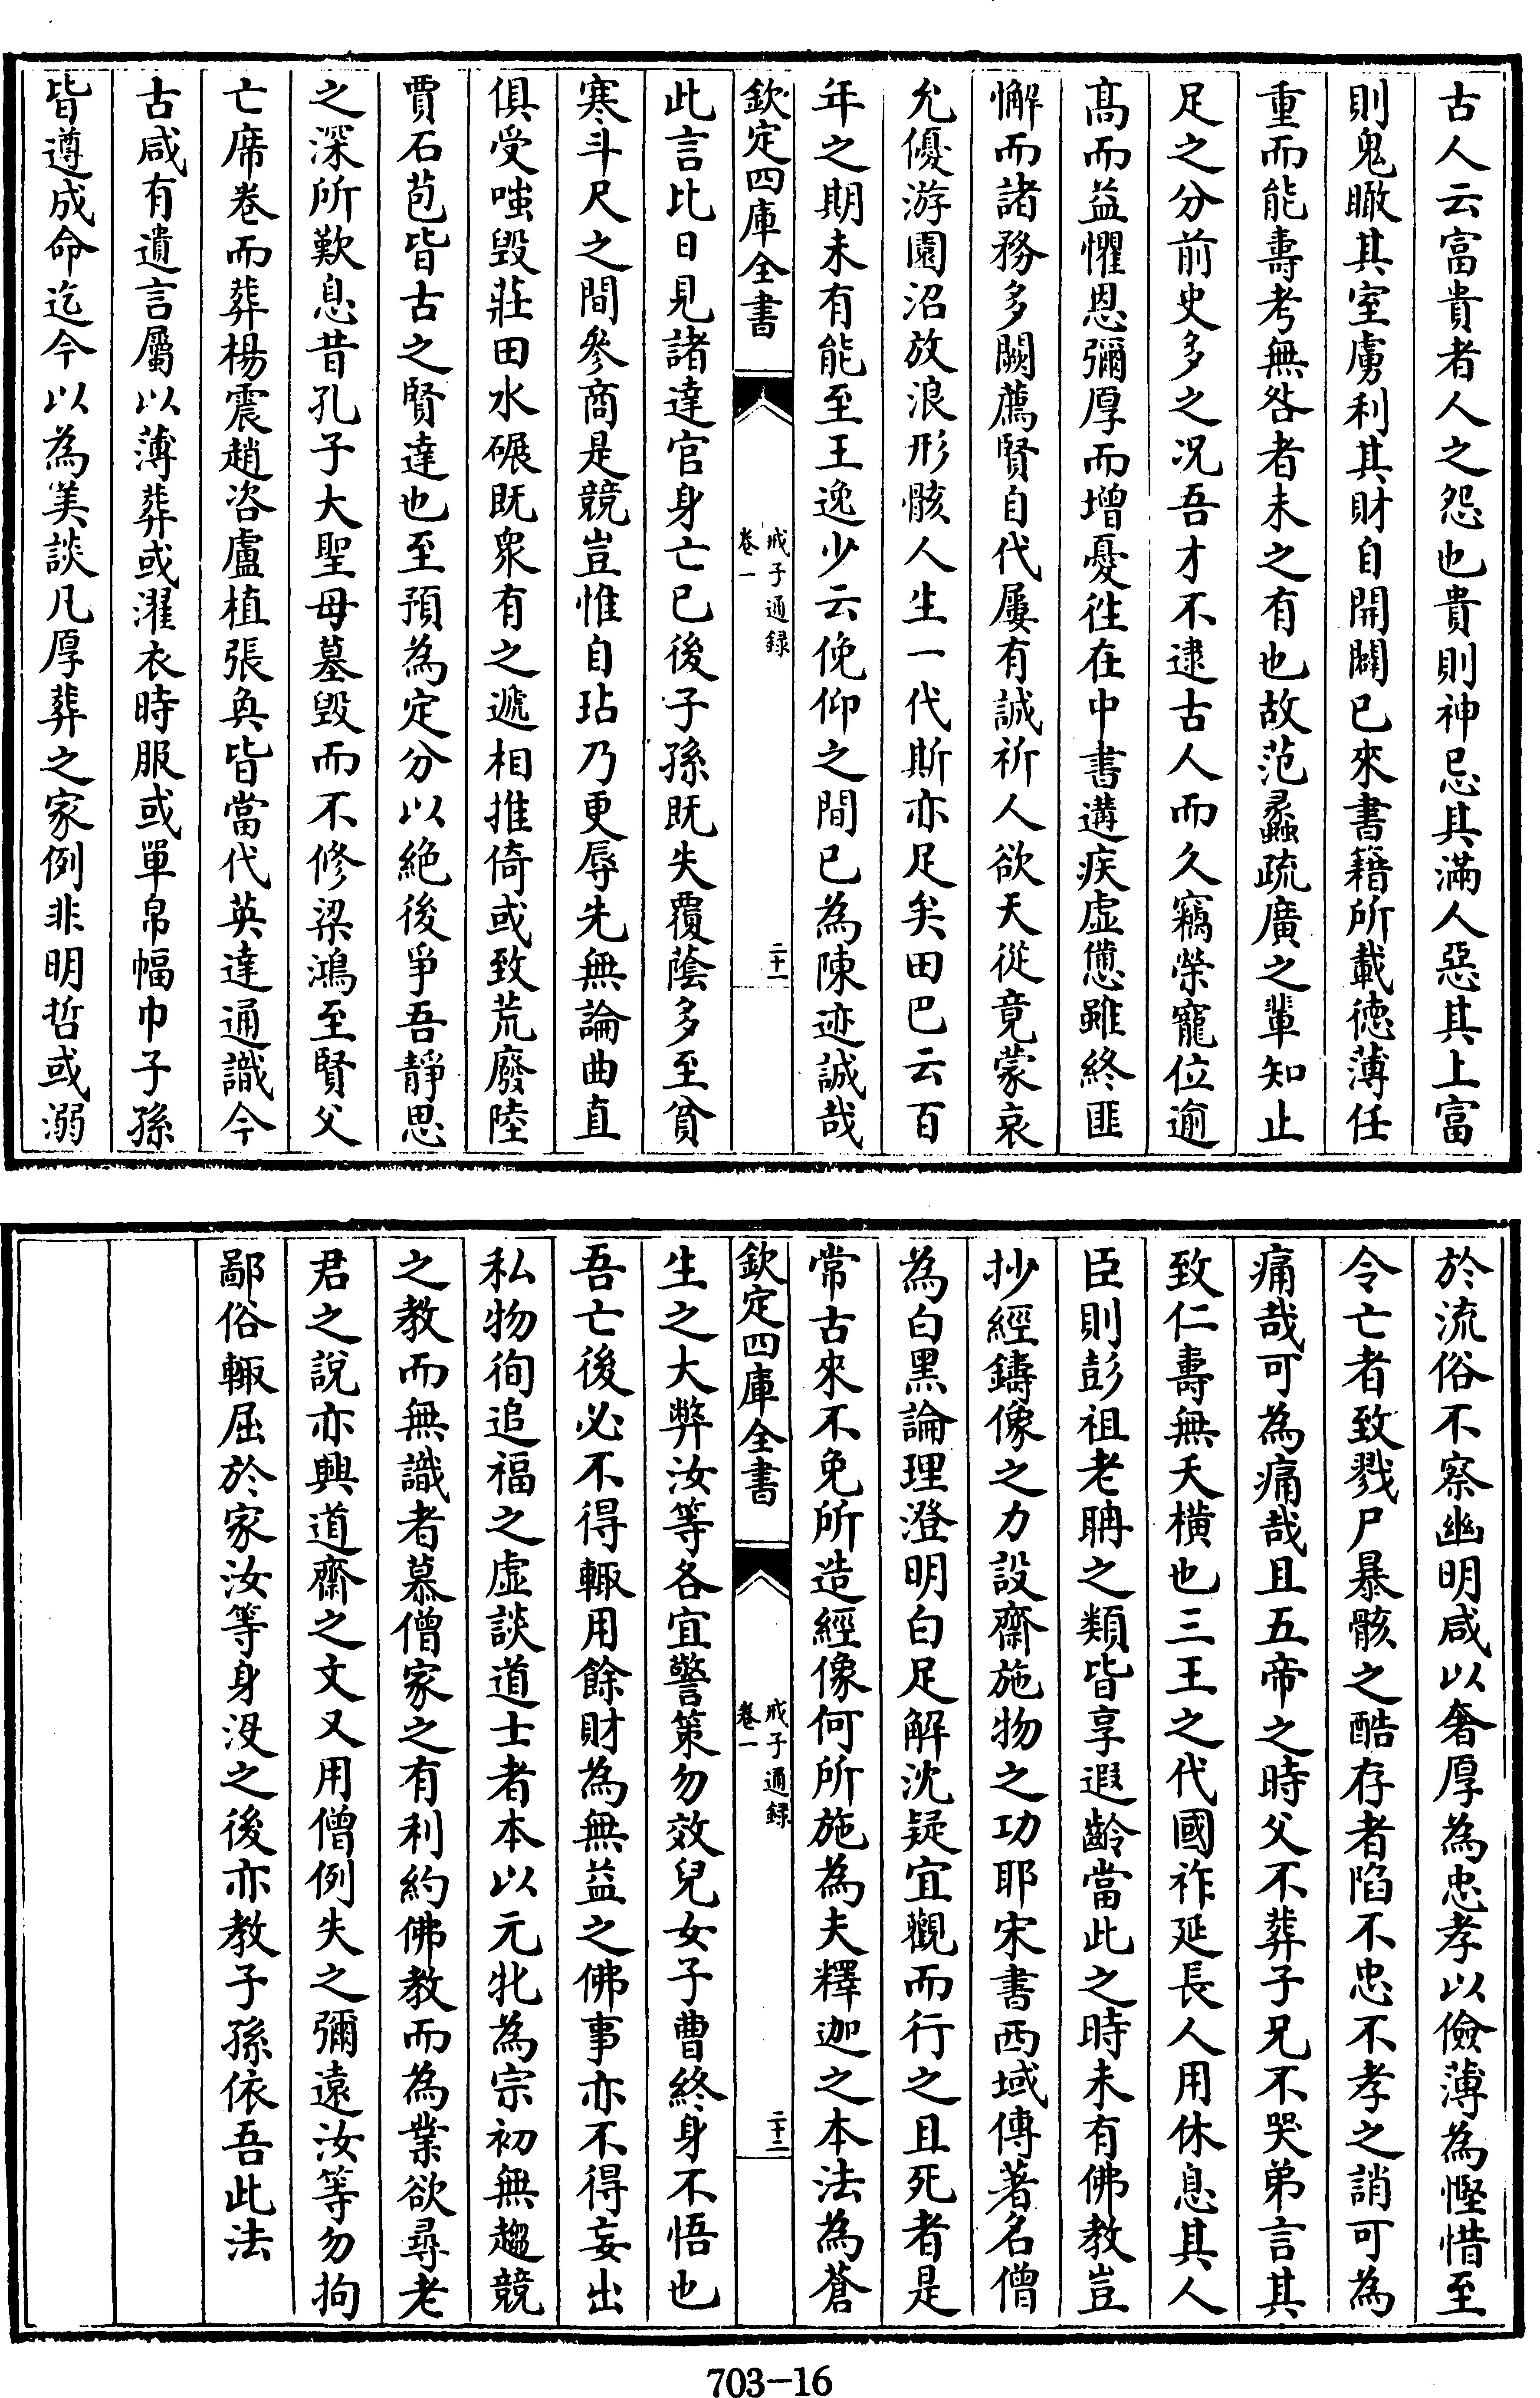 古人云富貴者人之怨也貴則神忌其滿人惡其上富
則鬼瞰其室虜利其財自開闢已來書籍所載徳薄任
重而能壽考無咎者未之有也故范蠡疏廣之輩知止
足之分前史多之况吾才不逮古人而久竊榮寵位逾
髙而益懼恩彌厚而增憂徃在中書遘疾虚憊雖終匪
懈而諸務多闕薦賢自代屢有誠祈人欲天從竟蒙哀
允優游園沼放浪形骸人生一代斯亦足矣田巴云百
年之期未有能至王逸少云俛仰之間已為陳迹誠哉
欽定四庫全書
戒子通録
卷一
二十一
此言比日見諸達官身亡已後子孫既失覆蔭多至貧
寒斗尺之間參商是競豈惟自玷乃更辱先無論曲直
俱受嗤毀莊田水碾既衆有之遞相推倚或致荒廢陸
賈石苞皆古之賢達也至預為定分以絶後爭吾靜思
之深所歎息昔孔子大聖母墓毀而不修梁鴻至賢父
亡席卷而葬楊震趙咨盧植張奐皆當代英達通識今
古咸有遺言屬以薄葬或濯衣時服或單帛幅巾子孫
皆遵成命迄今以為美談凡厚葬之家例非明哲或溺
於流俗不察幽明咸以奢厚為忠孝以儉薄為慳惜至
令亡者致戮尸暴骸之酷存者陷不忠不孝之誚可為
痛哉可為痛哉且五帝之時父不葬子兄不哭弟言其
致仁壽無夭橫也三王之代國祚延長人用休息其人
臣則彭祖老聃之類皆享遐齡當此之時未有佛教豈
抄經鑄像之力設齋施物之功耶宋書西域傳著名僧
為白黑論理澄明白足解沈疑宜觀而行之且死者是
常古來不免所造經像何所施為夫釋迦之本法為蒼
欽定四庫全書
戒子通録
卷一
二十二
生之大弊汝等各宜警策勿效兒女子曹終身不悟也
吾亡後必不得輙用餘財為無益之佛事亦不得妄出
私物徇追福之虚談道士者本以元牝為宗初無趨競
之教而無識者慕僧家之有利約佛教而為業欲尋老
君之說亦興道齋之文又用僧例失之彌遠汝等勿拘
鄙俗輙屈於家汝等身没之後亦教子孫依吾此法
703-16